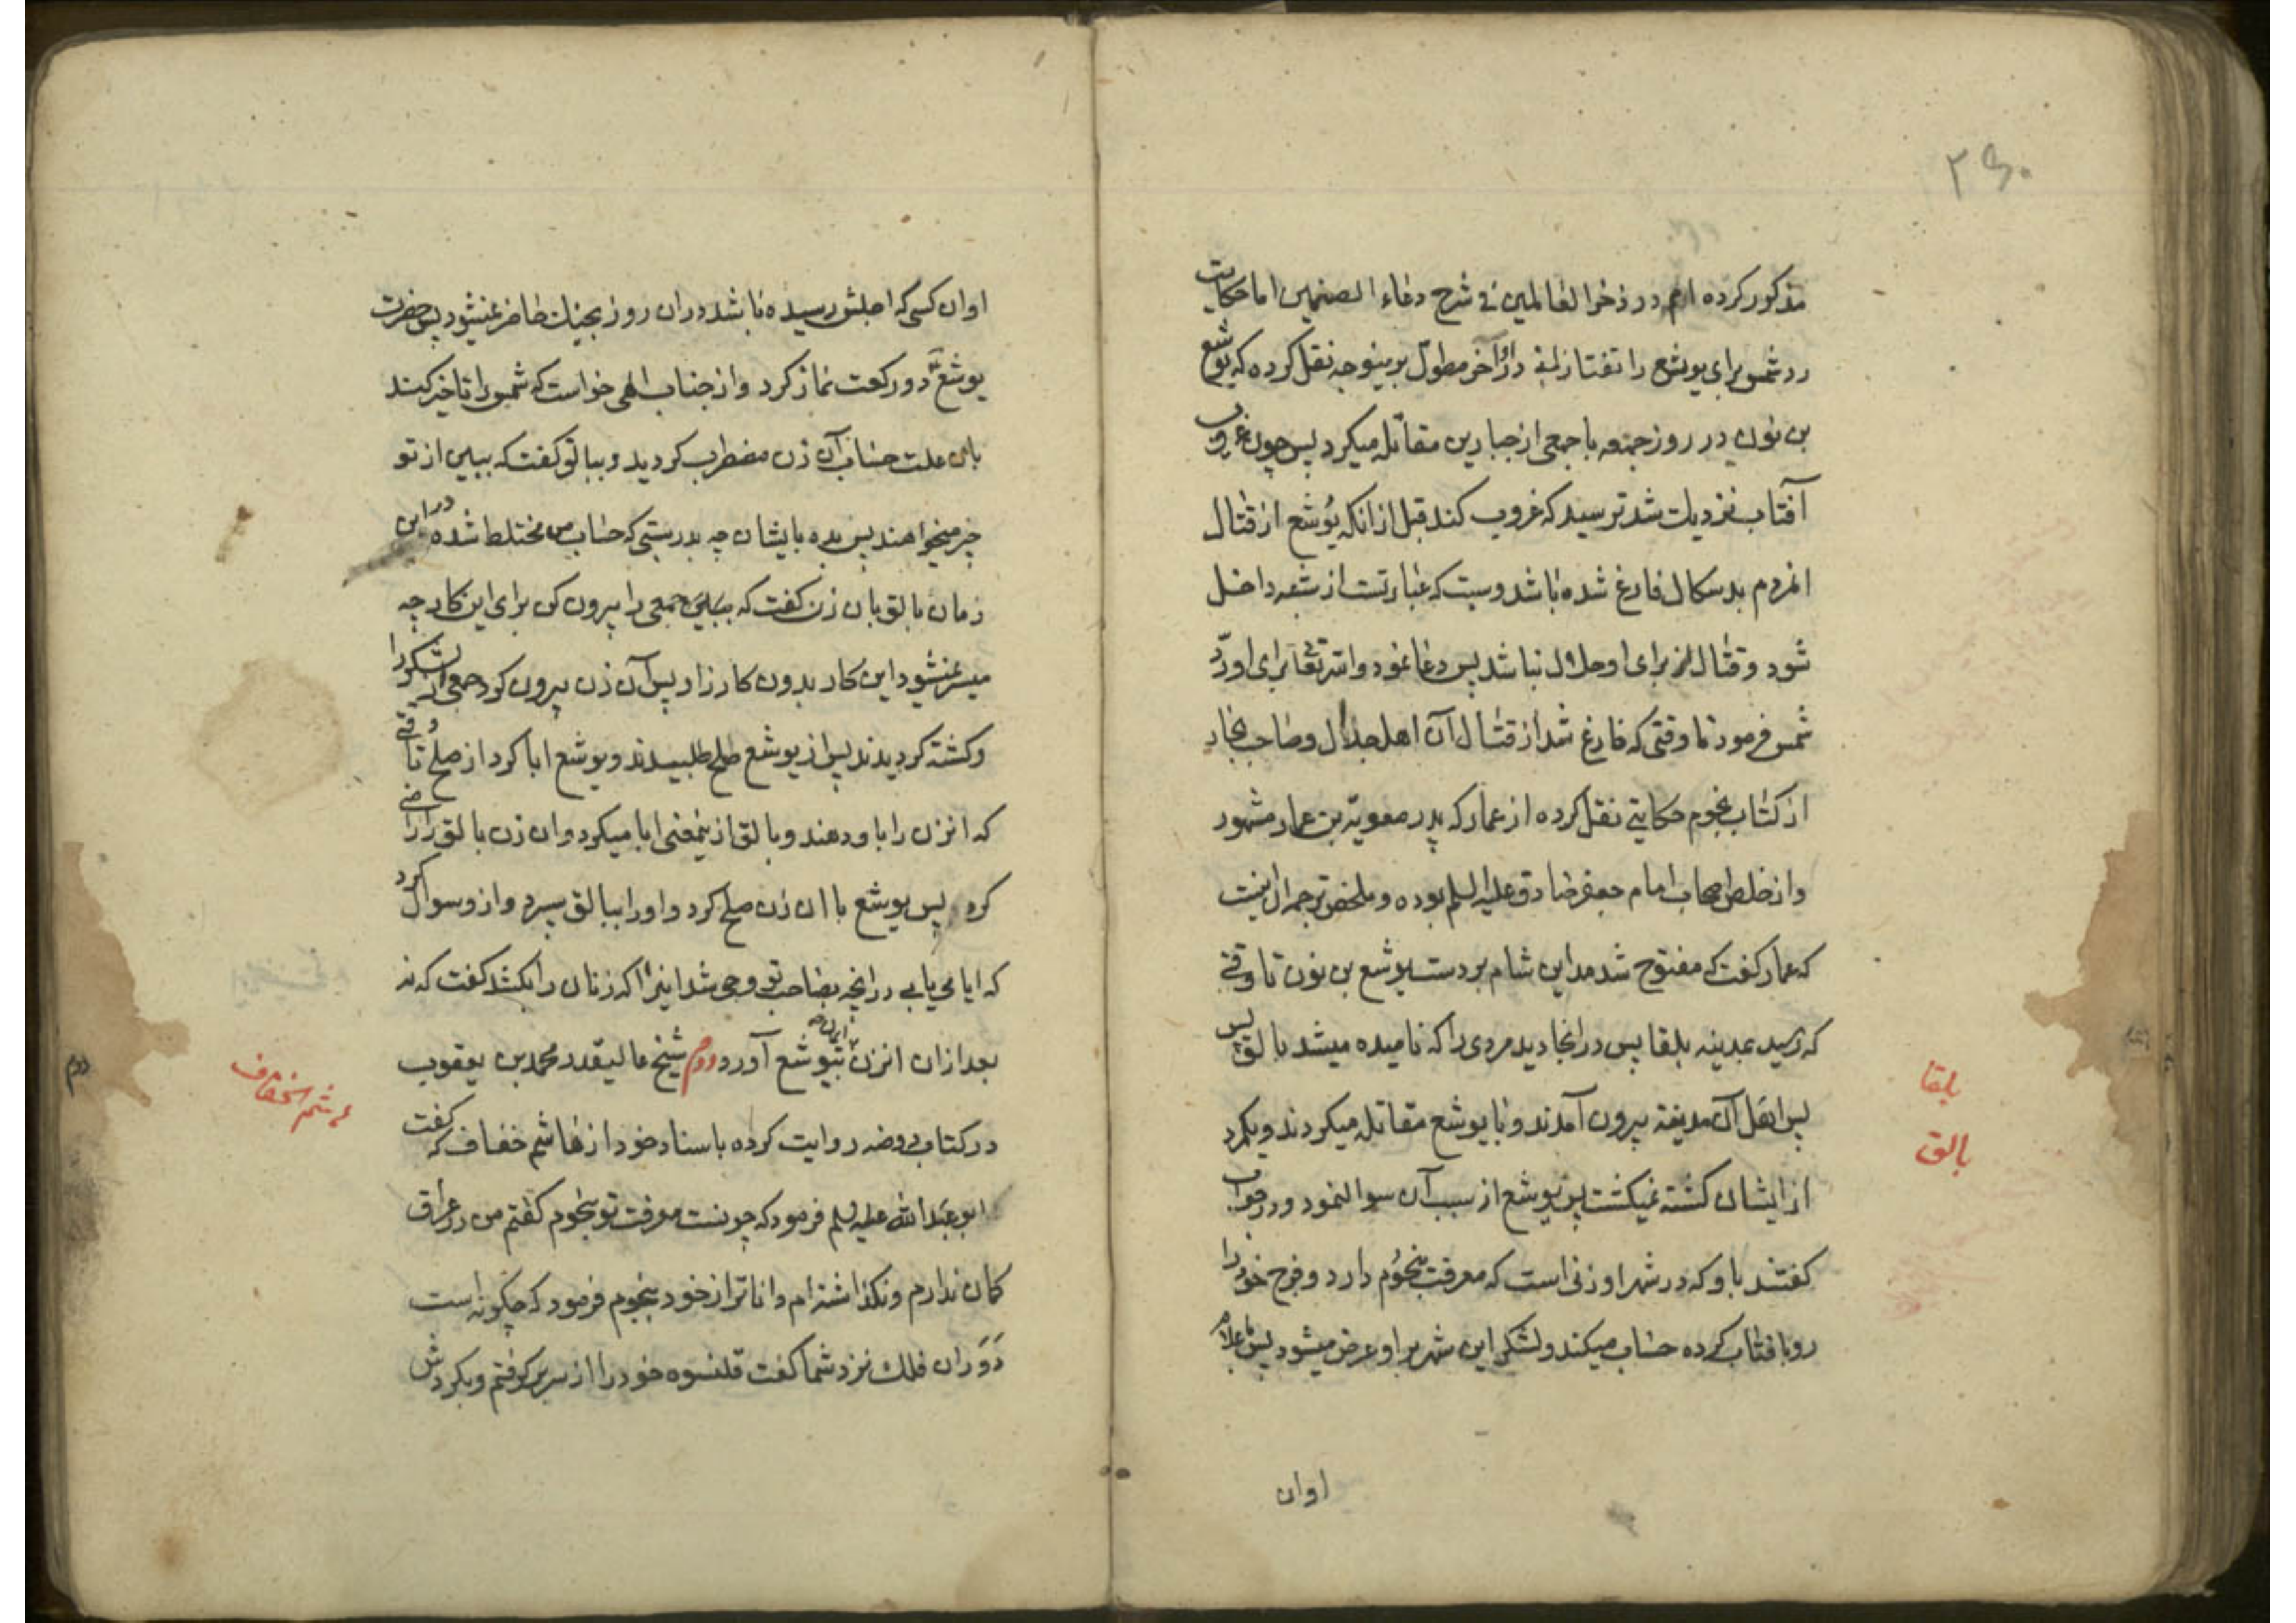 ۲۶۰
مذکور کرده ام در ذخر العالمین فی شرح دعاء الصنمین اما حکایت
رد شمس برای یوشع را تفتازانی در آخر مطول برینوجه نقل کرده که یوشع
بن نون در روز جمعه با جمعی از جبارین مقاتله میکرد پس چون غروب
آفتاب نزدیک شد ترسید که غروب کند قبل از انکه یوشع از قتال
انمردم بدسکال فارغ شده باشد و سبت که عبارتست از شنبه داخل
شود و قتال برای او حلال نباشد پس دعا نمود و الله تعالی برای او ردّ
شمس فرمود تا وقتی که فارغ شد از قتال آن اهل جدال و صاحب بحار
از کتاب نجوم حکایتی نقل کرده از عمار که پدر معویة بن عمار مشهور
و از خلص اصحاب امام جعفر صادق علیه السلم بوده و ملخص ترجمه آن اینست
که عمار کفت که مفتوح شد مداین شام بر دست یوشع بن نون تا وقتی
که رسید بمدینه بلقا پس در انجا دید مردی را که نامیده میشد بالق پس
پس اهل آن مدینه بیرون آمدند و با یوشع مقاتله میکردند و یکمرد
از ایشان کشته نمیکشت پس یوشع از سبب آن سوال نمود و در جواب
کفتند باو که در شهر او زنی است که معرفت بنجوم دارد و فرج خود را
رو بافتاب کرده حساب میکند و لشکر این شهر بر او عرض میشود پس باعلام
بلقا
بالق
اوان
اوان کسی که اجلش رسیده باشد در ان روز بجنك حاضر نمیشود پس حضرت
یوشع دو رکعت نماز کرد و از جناب الهی خواست که شمس را تاخیر کند
باین علت حساب آن زن مضطرب کردید و ببالق کفت که ببین از تو
چیز میخواهند پس بده بایشان چه بدرستی که حساب من مختلط شده در این
زمان بالق بان زن کفت که ببین جمعی را بیرون کن برای این کار چه
میسر نمیشود این کار بدون کارزار پس آن زن بیرون کرد جمعی از لشکر را
و کشته کردیدند پس از یوشع صلح طلبیدند و یوشع ابا کرد از صلح تا وقتی
که انزن را باو دهند و بالق از ینمعنی ابا میکرد و ان زن بالق را راضی
کرد پس یوشع با ان زن صلح کرد و او را ببالق سپرد و از و سوال کرد
که ایا می یابی در انچه بصاحب تو وحی شد اینرا که زنان را بکشد کفت که نه
بعد از ان انزن ایمان به یوشع آورد دوم شیخ عالیقدر محمد بن یعقوب
در کتاب روضه روایت کرده باسناد خود از هاشم خفاف که کفت
ابو عبد الله علیه السلم فرمود که چونست معرفت تو بنجوم کفتم من در عراق
کمان ندارم و نکذاشته ام داناتر از خود بنجوم فرمود که چکونه است
دوران فلك نزد شما کفت قلنسوه خود را از سر بر کرفتم و بکردش
هاشم خفاف
دوم